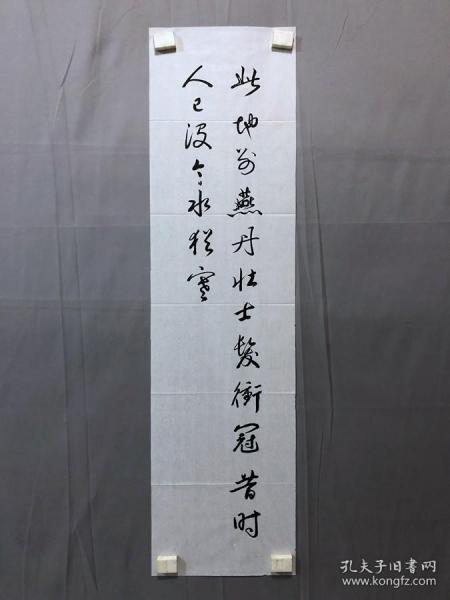 此地别燕丹壮士髮衝冠昔时
人已没今水犹寒
孔夫子旧书网
www.kongfz.com